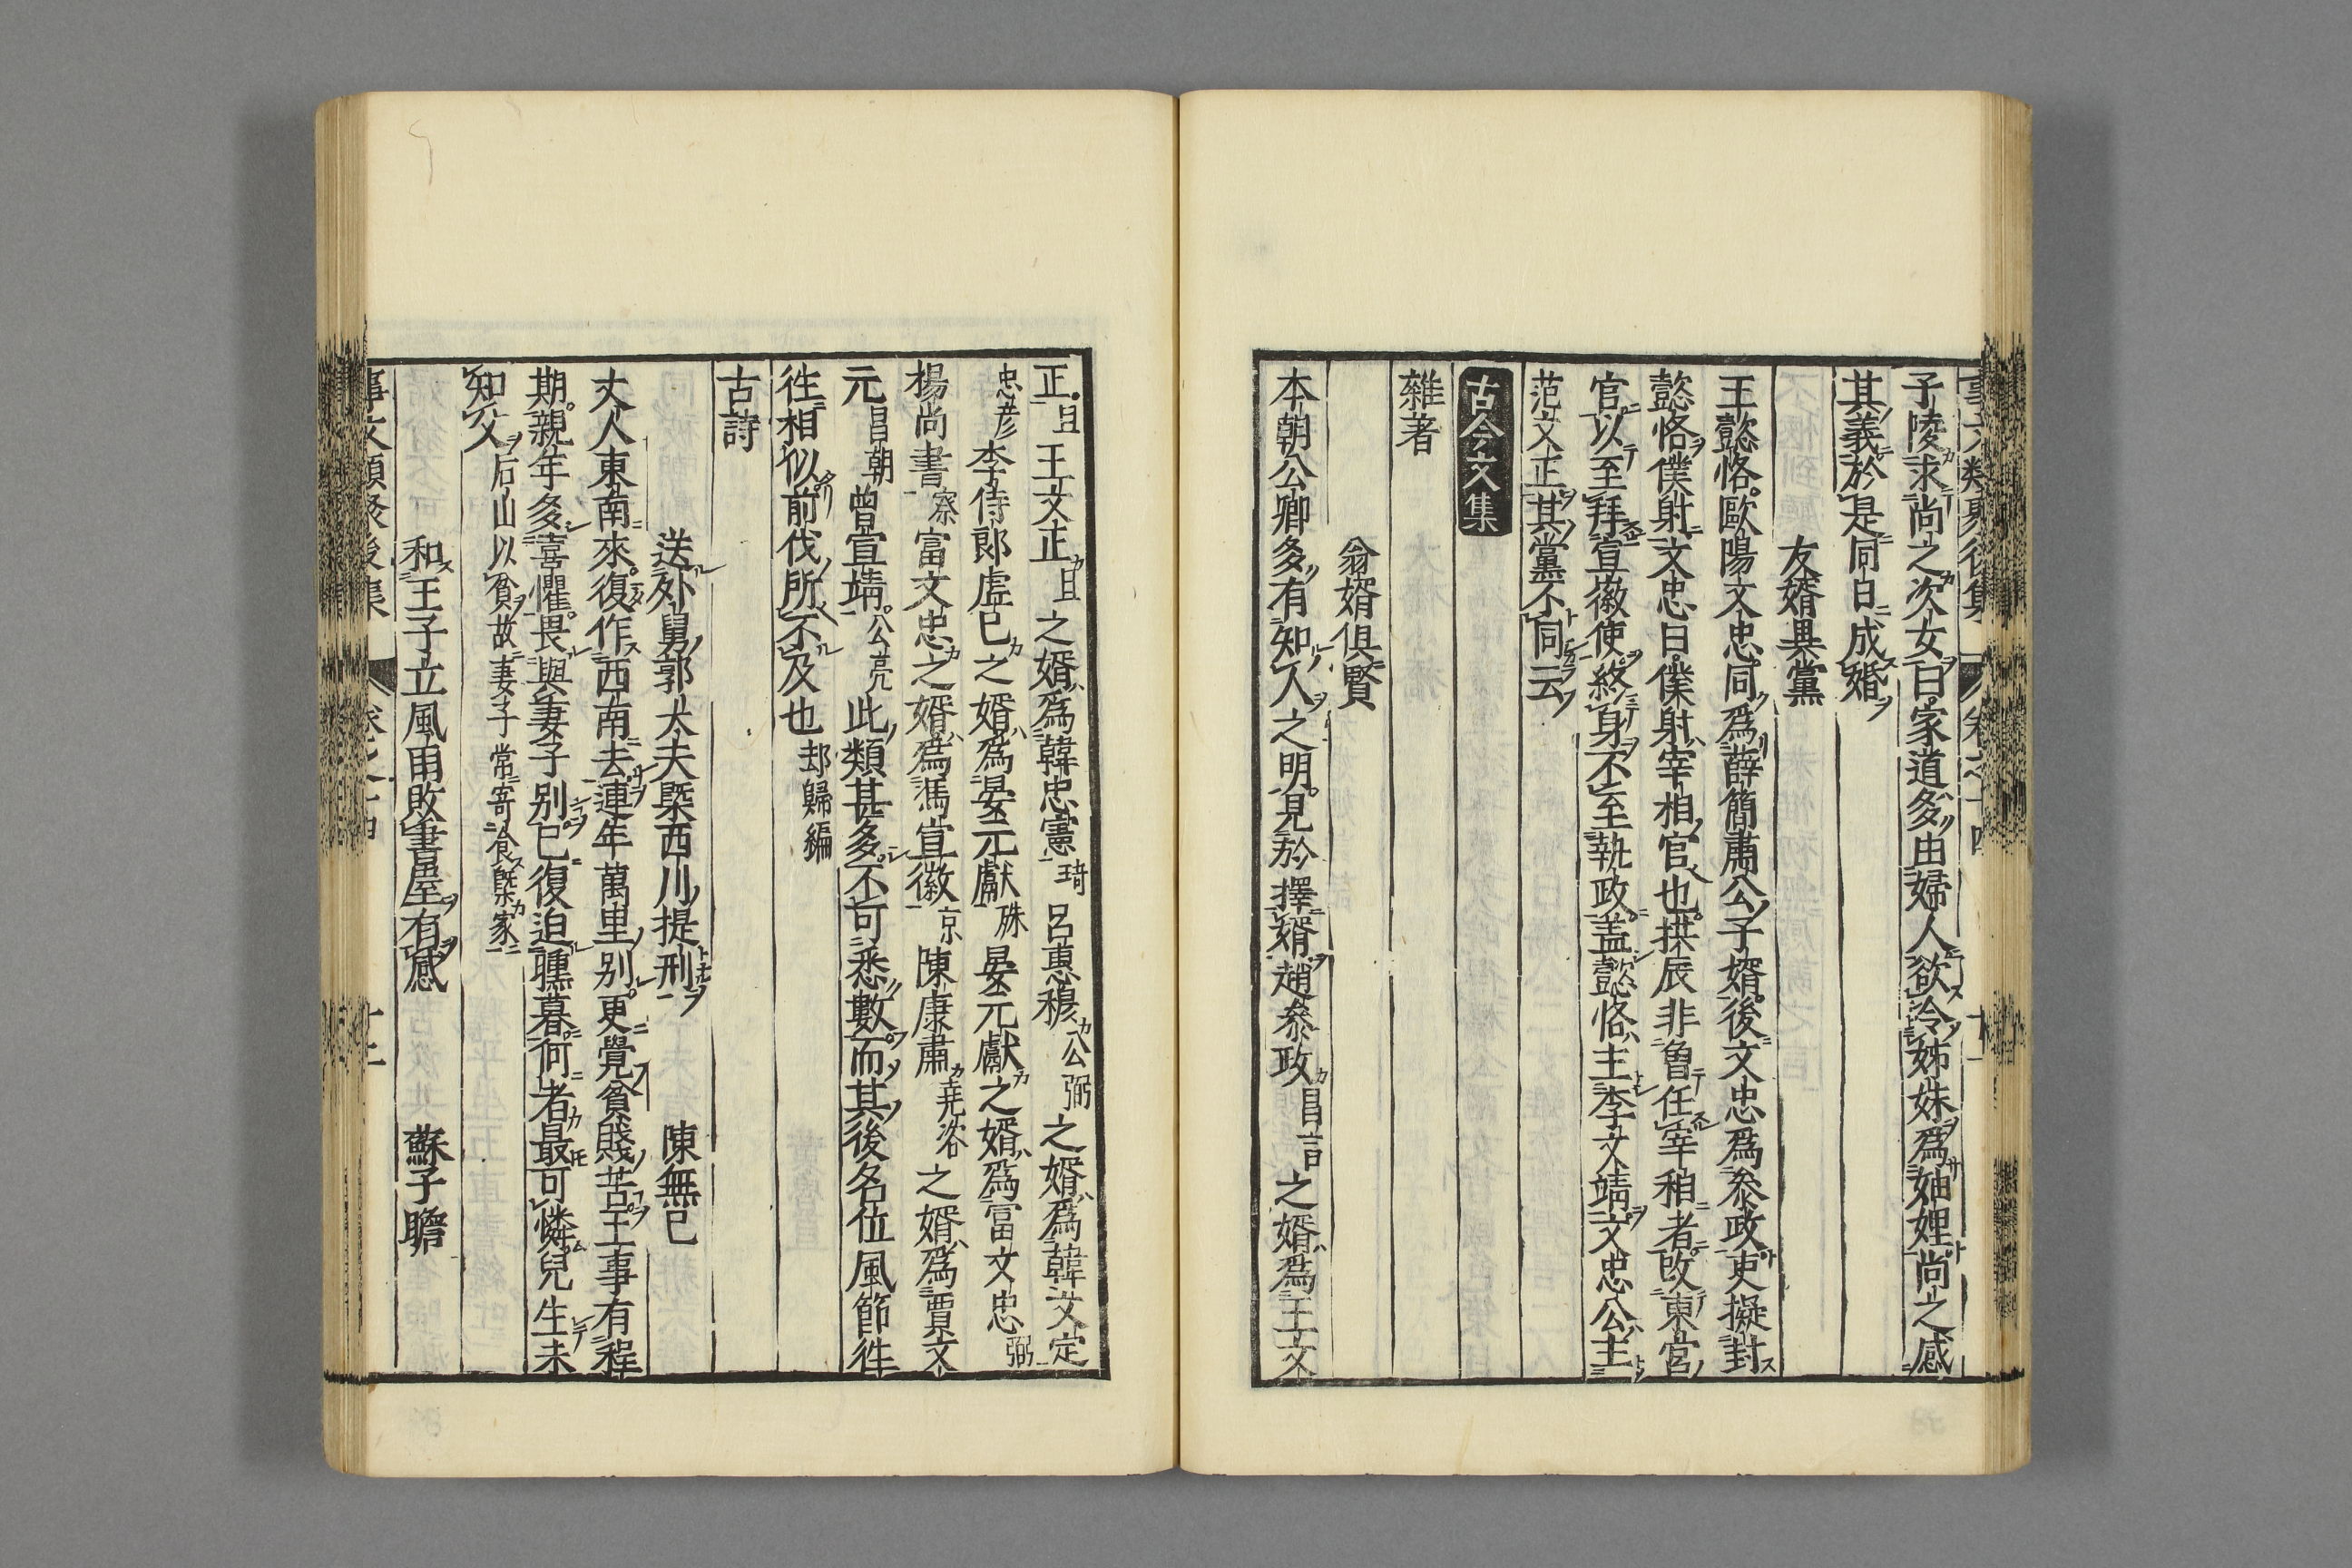 子陵求尚之次女曰家道多由婦人欲令姊妹爲妯娌尚之感
其義於是同日成婚
友婿異黨
王懿恪歐陽文忠同爲薛簡肅公子婿後文忠爲叅政吏擬封
懿恪僕射文忠曰僕射宰相官也拱辰非魯任宰相者改東宮
官以至拜宣徽使終身不至執政盖懿恪主李文靖文忠公主
范文正其黨不同云
古今文集
雜著
翁婿俱賢
本朝公卿多有知人之明見於擇婿趙叅政昌言之婿爲王文
正旦王文正旦之婿爲韓忠憲琦呂惠穆公弼之婿爲韓文定
忠彦李侍郎虛已之婿爲晏元獻殊晏元獻之婿爲富文忠弼
楊尚書察富文忠之婿爲馮宣徽京陳康肅堯咨之婿爲賈文
元昌朝曾宣靖公亮此類甚多不可悉數而其後名位風節徃
徃相似前伐所不及也却歸編
古詩
送外舅郭大夫槩西川提刑　陳無已
丈人東南來復作西南去連年萬里別更覺貧賤苦王事有程
期親年多喜懼畏與妻子別已復迫曛暮何者最可憐兒生未
知父后山以貧故妻子常寄食槩家
和王子立風雨敗書屋有感　蘇子瞻
事文類聚後集　卷之十四　十二